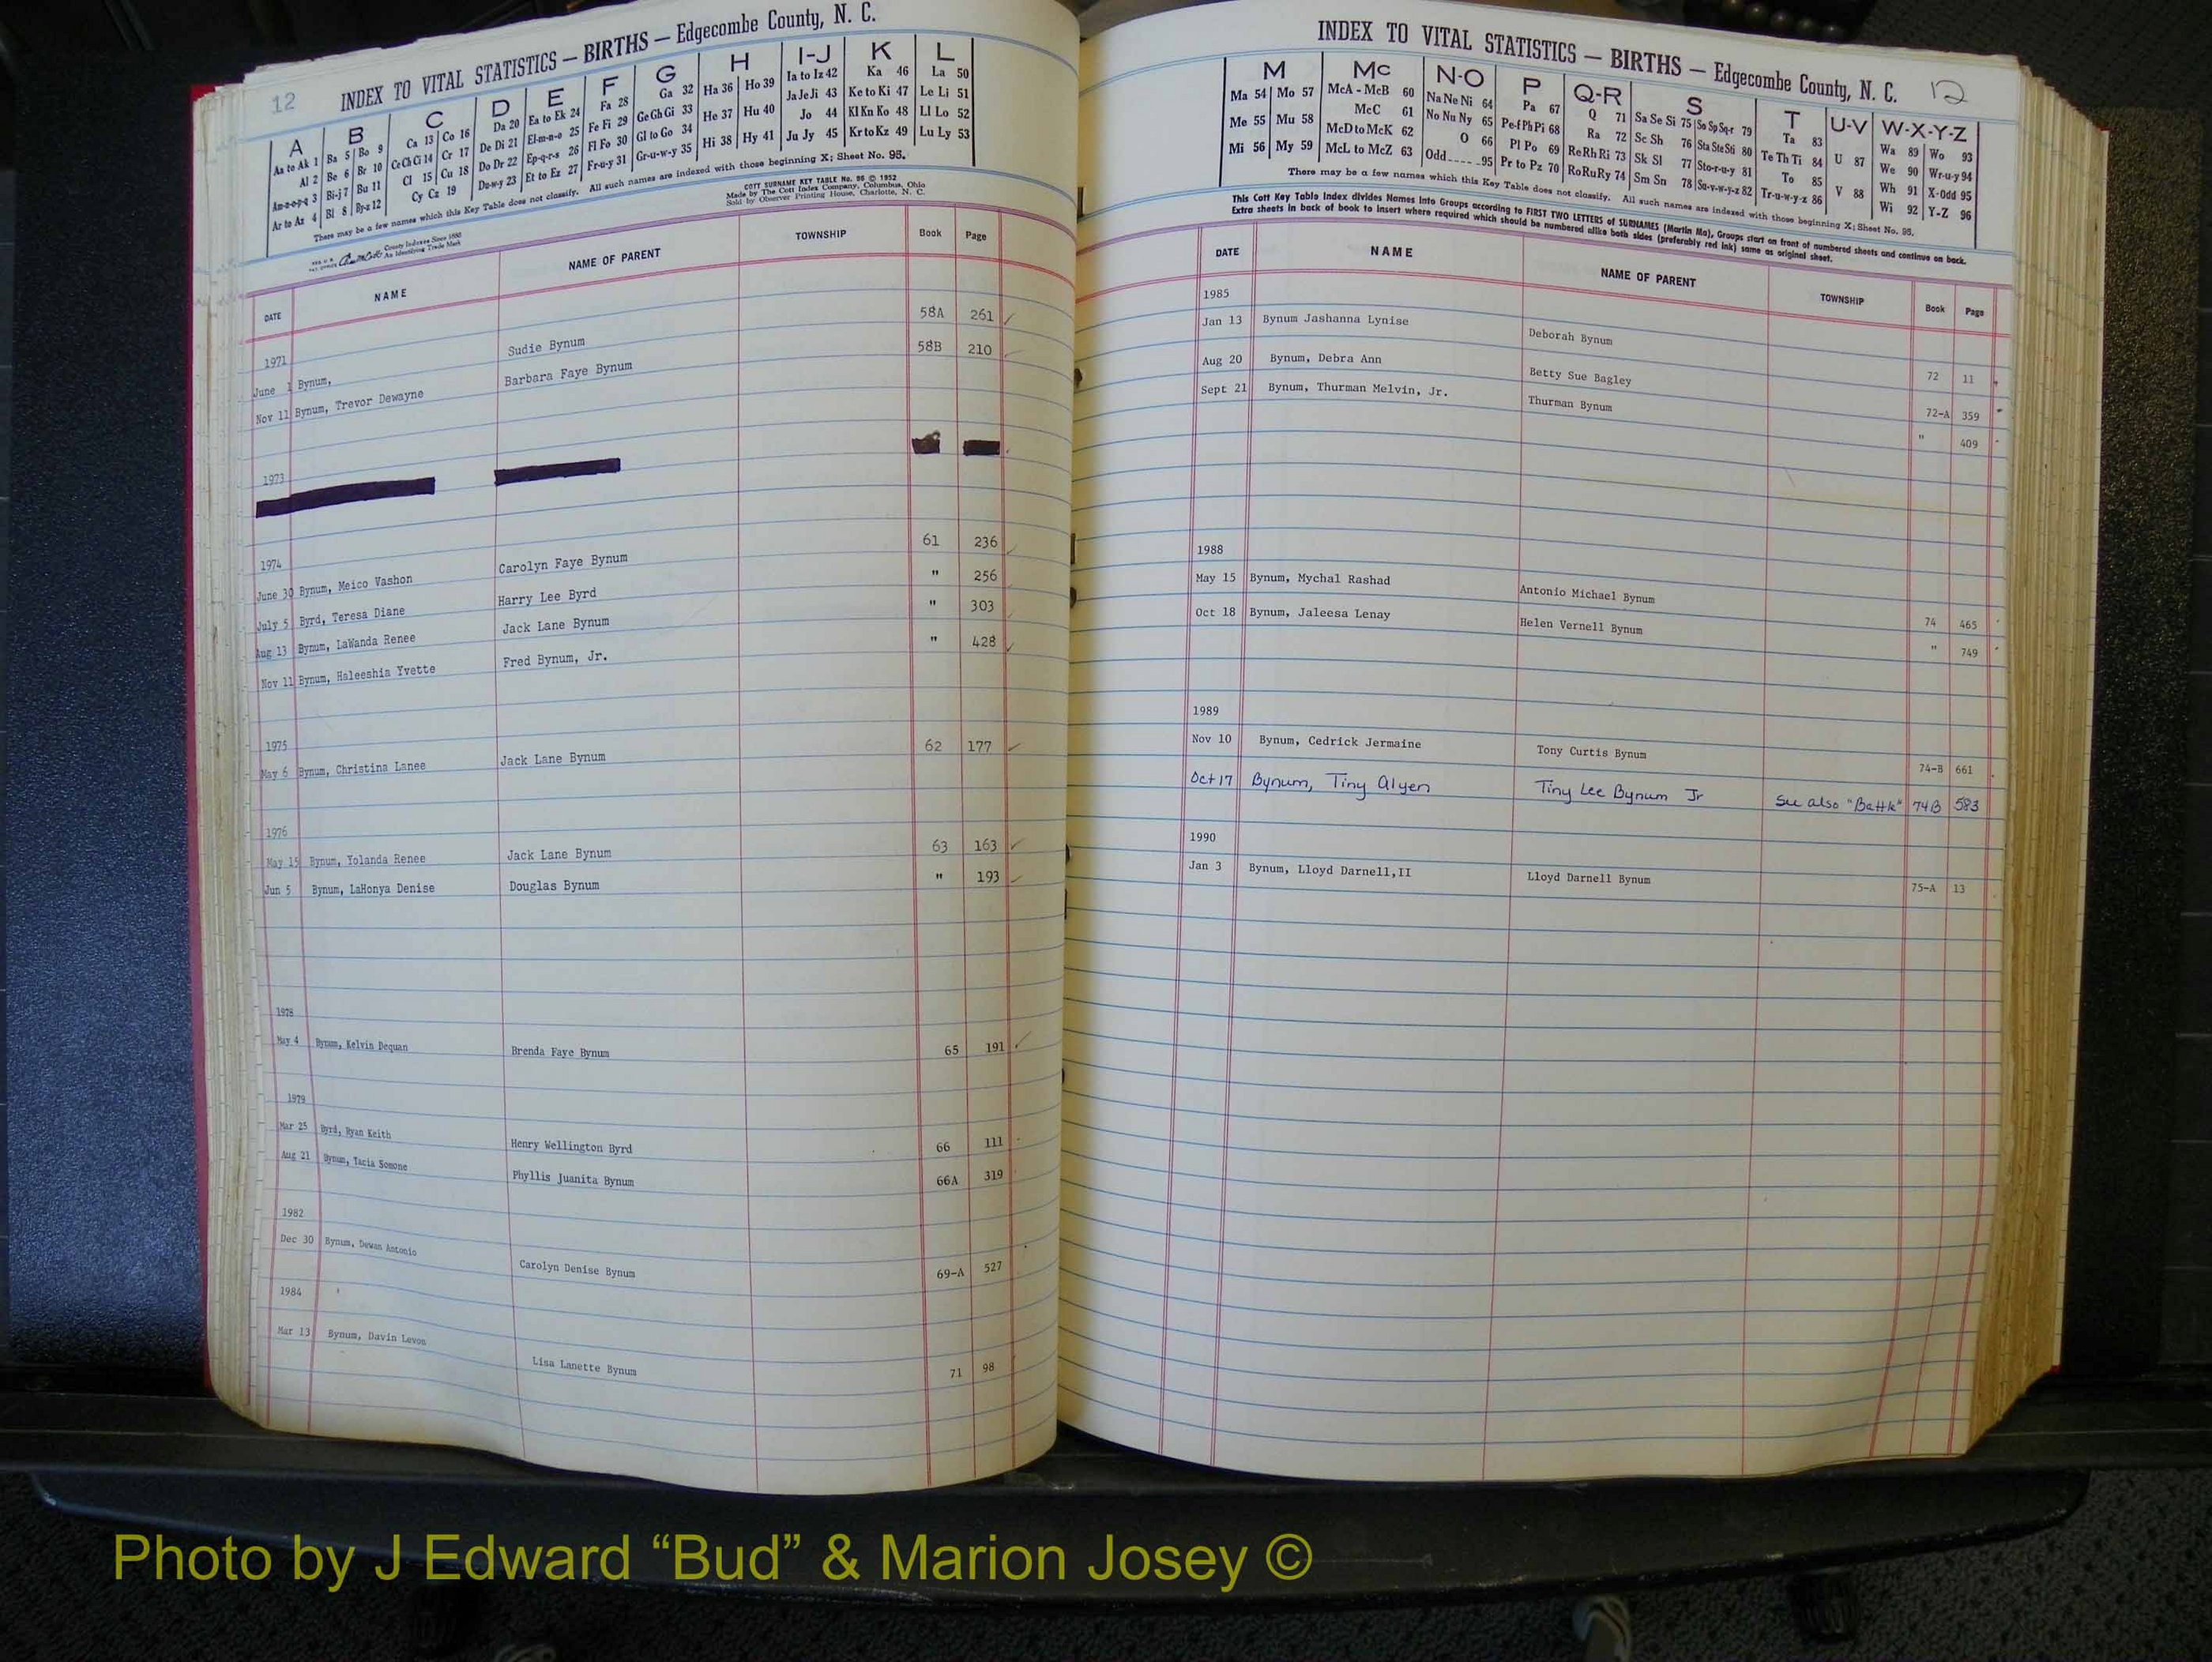 12
INDEX TO VITAL STATISTICS — BIRTHS — Edgecombe County, N. C.
A B C D E F G H I-J K L
Aa to Ak 1 Ba 5 Bo 9 Ca 13 Co 16 Da 20 Ea to Ek 24 Fa 28 Ga 32 Ha 36 Ho 39 Ia to Iz 42 Ka 46 La 50
Al 2 Be 6 Br 10 Ce Ch Ci 14 Cr 17 De Di 21 El-m-n-o 25 Fe Fi 29 Ge Gh Gi 33 He 37 Hu 40 Ja Je Ji 43 Ke to Ki 47 Le Li 51
Am-n-o-p-q 3 Bi-j 7 Bu 11 Cl 15 Cu 18 Do Dr 22 Ep-q-r-s 26 Fl Fo 30 Gl to Go 34 Hi 38 Hy 41 Jo 44 Kl Kn Ko 48 Ll Lo 52
Ar to Az 4 Bl 8 By-z 12 Cy Cz 19 Du-w-y 23 Et to Ez 27 Fr-u-y 31 Gr-u-w-y 35 Ju Jy 45 Kr to Kz 49 Lu Ly 53
There may be a few names which this Key Table does not classify. All such names are indexed with those beginning X; Sheet No. 95.
COTT SURNAME KEY TABLE No. 96 © 1952
Made by The Cott Index Company, Columbus, Ohio
Sold by Observer Printing House, Charlotte, N. C.
County Indexes Since 1888
An Identifying Trade Mark
DATE NAME NAME OF PARENT TOWNSHIP Book Page
1971
June 1 Bynum, Sudie Bynum 58A 261
Nov 11 Bynum, Trevor Dewayne Barbara Faye Bynum 58B 210
1973
1974
June 30 Bynum, Meico Vashon Carolyn Faye Bynum 61 236
July 5 Byrd, Teresa Diane Harry Lee Byrd " 256
Aug 13 Bynum, LaWanda Renee Jack Lane Bynum " 303
Nov 11 Bynum, Haleeshia Yvette Fred Bynum, Jr. " 428
1975
May 6 Bynum, Christina Lanee Jack Lane Bynum 62 177
1976
May 15 Bynum, Yolanda Renee Jack Lane Bynum 63 163
Jun 5 Bynum, LaHonya Denise Douglas Bynum " 193
1978
May 4 Bynum, Kelvin Dequan Brenda Faye Bynum 65 191
1979
Mar 25 Byrd, Ryan Keith Henry Wellington Byrd 66 111
Aug 21 Bynum, Tacia Somone Phyllis Juanita Bynum 66A 319
1982
Dec 30 Bynum, Dewan Antonio Carolyn Denise Bynum 69-A 527
1984
Mar 13 Bynum, Davin Levon Lisa Lanette Bynum 71 98
INDEX TO VITAL STATISTICS — BIRTHS — Edgecombe County, N. C. 12
M Mc N-O P Q-R S T U-V W-X-Y-Z
Ma 54 Mo 57 McA - McB 60 Na Ne Ni 64 Pa 67 Q 71 Sa Se Si 75 So Sp Sq-r 79 Ta 83 Wa 89 Wo 93
Me 55 Mu 58 McC 61 No Nu Ny 65 Pe-f Ph Pi 68 Ra 72 Sc Sh 76 Sta Ste Sti 80 Te Th Ti 84 U 87 We 90 Wr-u-y 94
Mi 56 My 59 McD to McK 62 O 66 Pl Po 69 Re Rh Ri 73 Sk Sl 77 Sto-r-u-y 81 To 85 Wh 91 X-Odd 95
McL to McZ 63 Odd 95 Pr to Pz 70 Ro Ru Ry 74 Sm Sn 78 Su-v-w-y-z 82 Tr-u-w-y-z 86 V 88 Wi 92 Y-Z 96
There may be a few names which this Key Table does not classify. All such names are indexed with those beginning X; Sheet No. 95.
This Cott Key Table Index divides Names into Groups according to FIRST TWO LETTERS of SURNAMES (Martin Ma), Groups start on front of numbered sheets and continue on back.
Extra sheets in back of book to insert where required which should be numbered alike both sides (preferably red ink) same as original sheet.
DATE NAME NAME OF PARENT TOWNSHIP Book Page
1985
Jan 13 Bynum Jashanna Lynise Deborah Bynum 72 11
Aug 20 Bynum, Debra Ann Betty Sue Bagley 72-A 359
Sept 21 Bynum, Thurman Melvin, Jr. Thurman Bynum " 409
1988
May 15 Bynum, Mychal Rashad Antonio Michael Bynum 74 465
Oct 18 Bynum, Jaleesa Lenay Helen Vernell Bynum " 749
1989
Nov 10 Bynum, Cedrick Jermaine Tony Curtis Bynum 74-B 661
Oct 17 Bynum, Tiny Alyen Tiny Lee Bynum Jr See also "Battk" 74B 583
1990
Jan 3 Bynum, Lloyd Darnell,II Lloyd Darnell Bynum 75-A 13
Photo by J Edward “Bud” & Marion Josey ©